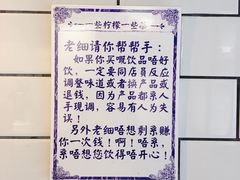 一些柠檬一些茶
老细请你帮帮手：
如果你买嘅饮品唔好
饮，一定要同店員反应
调整味道或者换产品或
退钱，因为产品都系人
手现调，容易有人为失
误！
另外老细唔想剩系赚
你一次钱！啊！唔系，
系唔想您饮得唔开心！